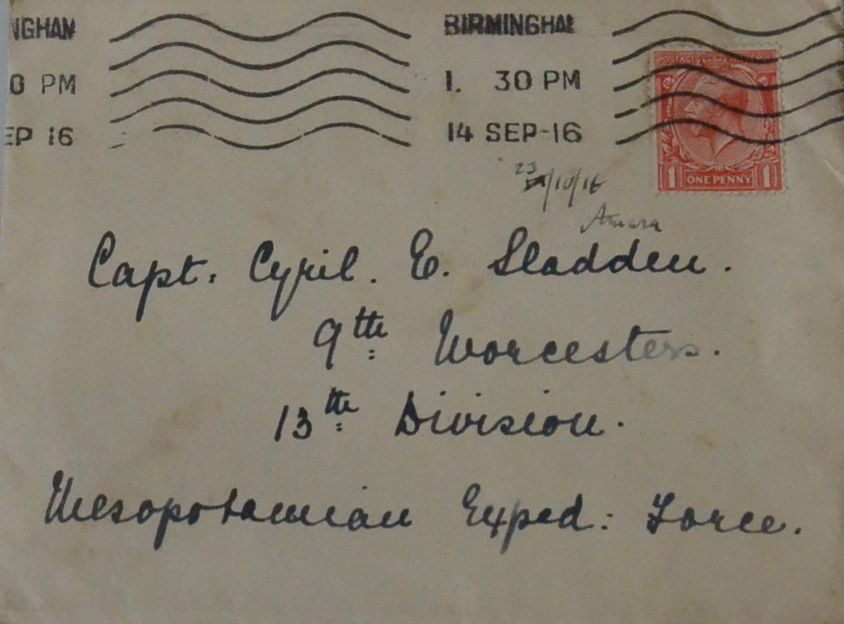 NGHAM BIRMINGHA
0 PM 1. 30 PM
EP 16 14 SEP-16
POSTAGE REVENUE
1 ONE PENNY 1
23/10/16
Amara
Capt: Cyril. E. Sladden.
9th Worcesters.
13th Division.
Mesopotamian Exped: Force.